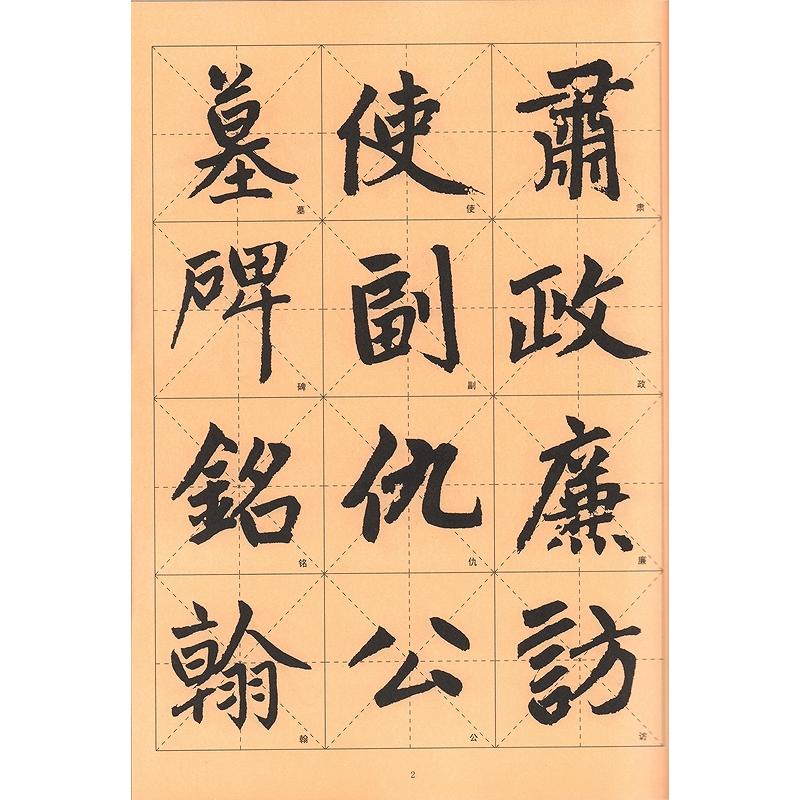 肅政廉訪
肃政廉访
使副仇公
使副仇公
墓碑銘翰
墓碑铭翰
2